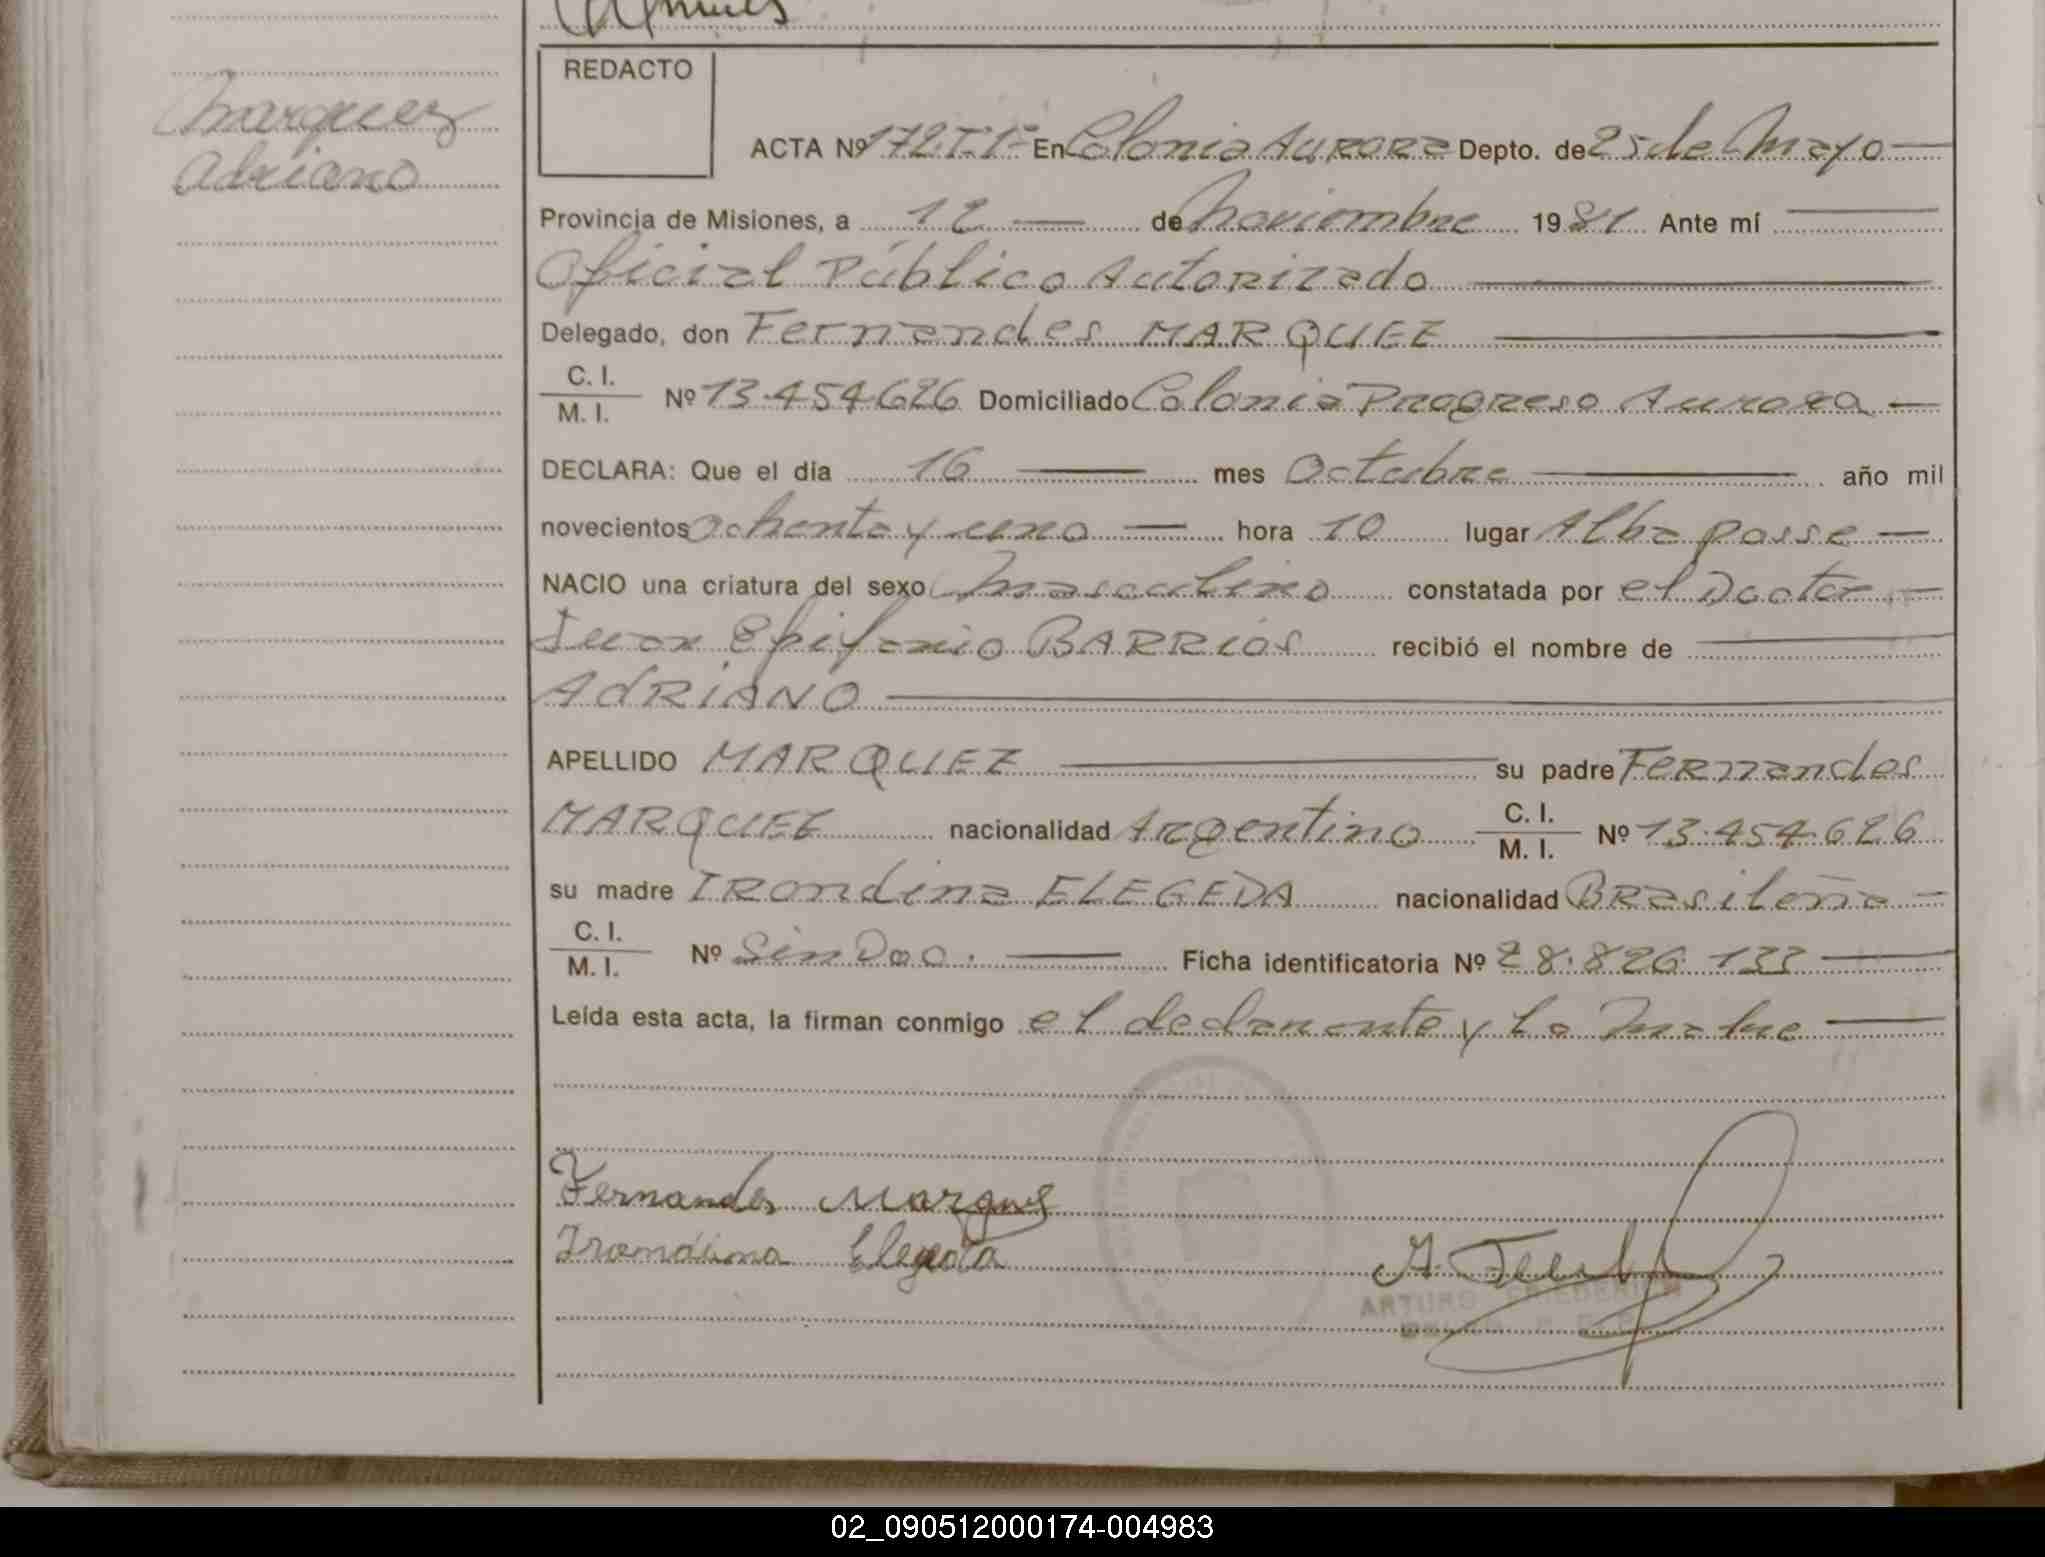 REDACTO
Marquez
Adriano
ACTA Nº 172 T-1º En Colonia Aurora Depto. de 25 de Mayo
Provincia de Misiones, a 12 de Noviembre 1981 Ante mí
Oficial Público Autorizado
Delegado, don Fernandes MARQUEZ
C. I.
M. I. Nº 13.454.626 Domiciliado Colonia Progreso Aurora
DECLARA: Que el día 16 mes Octubre año mil
novecientos ochenta y uno hora 10 lugar Alba posse
NACIO una criatura del sexo Masculino constatada por el Doctor
Juan Epifanio BARRIOS recibió el nombre de
ADRIANO
APELLIDO MARQUEZ su padre Fernandes
MARQUEZ nacionalidad Argentino C. I. M. I. Nº 13.454.626
su madre IRondina ELEGEDA nacionalidad BRasileña
C. I.
M. I. Nº Sin Doc. Ficha identificatoria Nº 28.826.133
Leída esta acta, la firman conmigo el declarante y la Madre
Fernandes Marques
Irondina
ARTURO FRIEDERICH
02_090512000174-004983